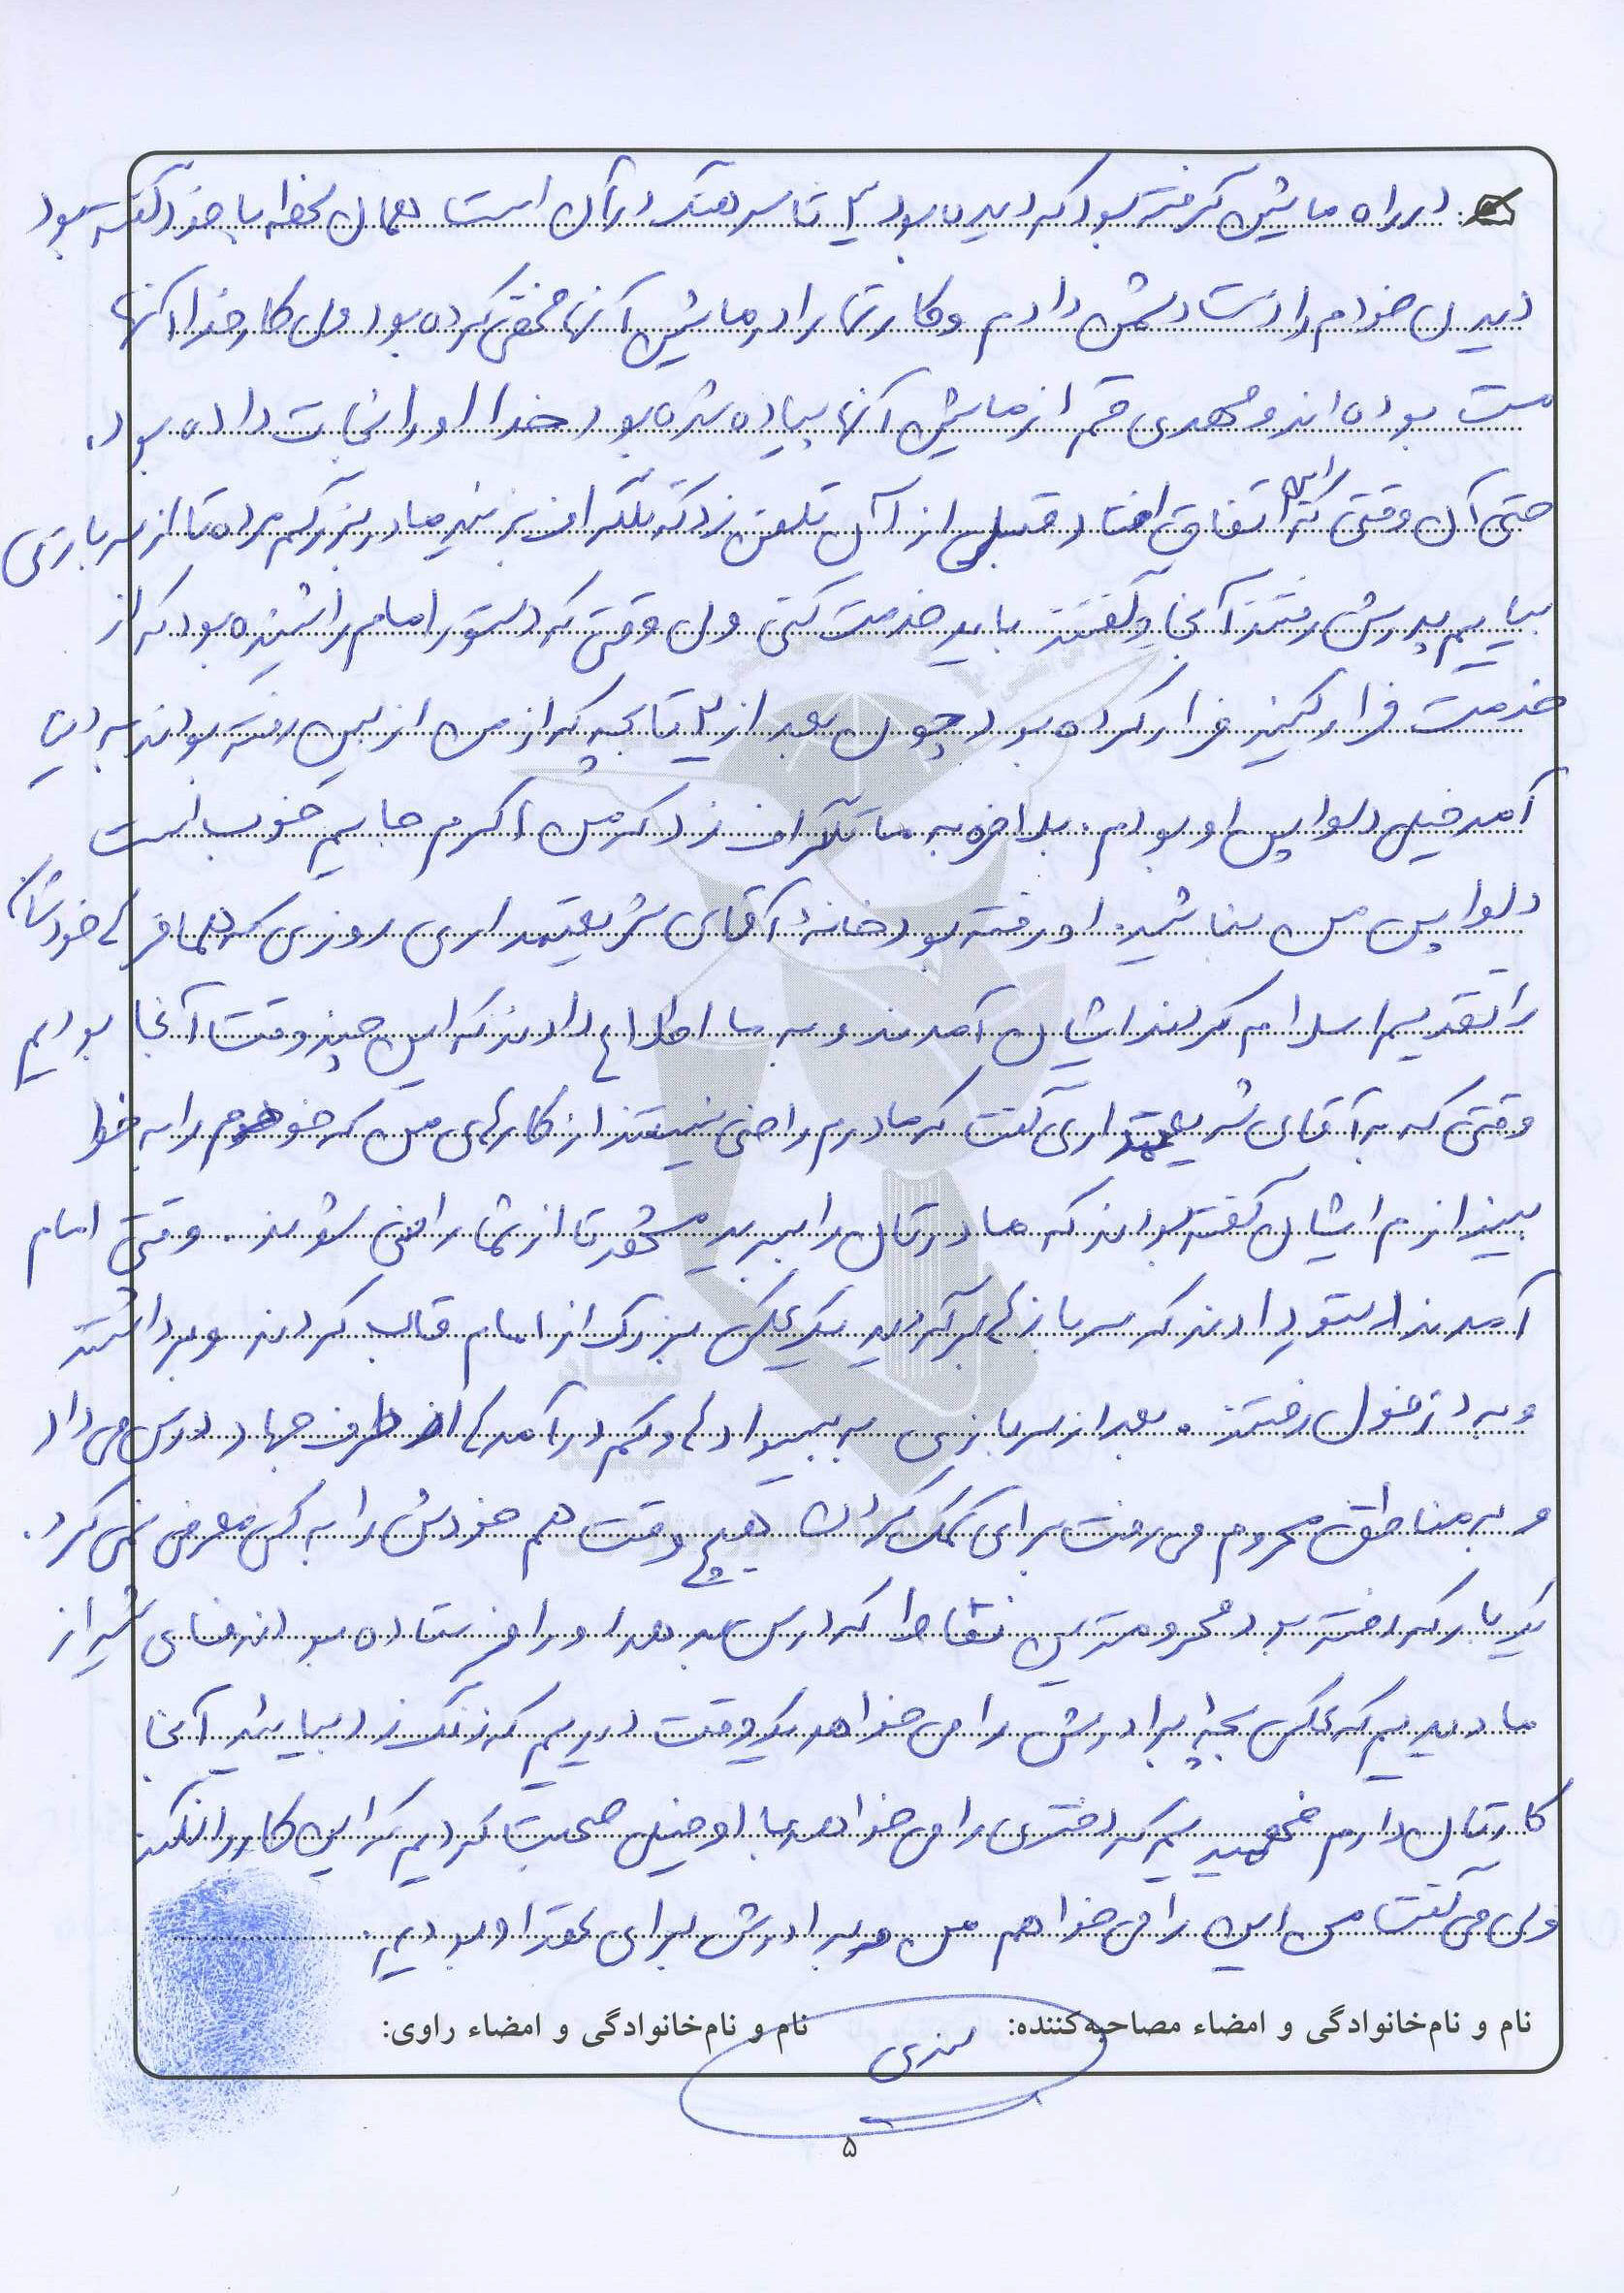 در راه ماشین گرفته بود که دیده بود یک تا سرهنگ در آن است همان لحظه با خود گفته بود
دیدی خودم را دست دشمن دادم و کارتها را در ماشین آنها مخفی کرده بود ولی کار خدا آنها
مست بوده اند و مهدی قم از ماشین آنها پیاده شده بود خدا او را نجات داده بود.
حتی آن وقتی که این اتفاق افتاد قبلی از آن تلفن زد که تلگراف بزنید مادر بزرگم مرده تا از سربازی
بیایم پدرش رفتند آنجا و گفتند باید خدمت کنی ولی وقتی که دستور امام را شنیده بود که از
خدمت فرار کنید فرار کرده بود چون بعد از یک تا بچه که از من از بین رفته بودند به دنیا
آمد خیلی دلواپس او بودم. بلاخره به ما تلگراف زد که من اکرم جایم خوب است
دلواپس من نباشید. او رفته بود خانۀ آقای شریعتمداری روزی که همافر های خودشان
را تقدیم اسلام کردند ایشان آمدند و به ما اطلاع دادند که این چند وقت آنجا بودیم
وقتی که به آقای شریعتمداری گفت که مادرم راضی نیستند از کارهای من که خودم را به خوا
بیندازم ایشان گفته بودند که مادرتان را ببرید مشهد تا از شما راضی شوند. وقتی امام
آمدند دستور دادند که سرباز ها برگردید یک عکس بزرگ از امام قاب کردند و برداشتند
و به دزفول رفتند. بعد از سربازی به بیسواد ها و کم درآمد ها از طرف جهاد درس می داد
و به مناطق محروم می رفت برای کمک کردن هیچ وقت هم خودش را به کسی معرفی نمی کرد.
یک بار که رفته بود محرومترین نقاط را که درس بدهد او را فرستاده بودند فسای شیراز
ما دیدیم که عکس بچه برادرش را می خواهد یک وقت دیدیم که زنگ زد بیائید آنجا
کارتان دارم فهمیدیم که دختری را می خواهد با او خیلی صحبت کردیم که این کار را نکند
ولی می گفت من این را می خواهم من و برادرش برای عقد او بودیم.
نام و نام‌خانوادگی و امضاء مصاحبه‌کننده: نام و نام‌خانوادگی و امضاء راوی:
۵